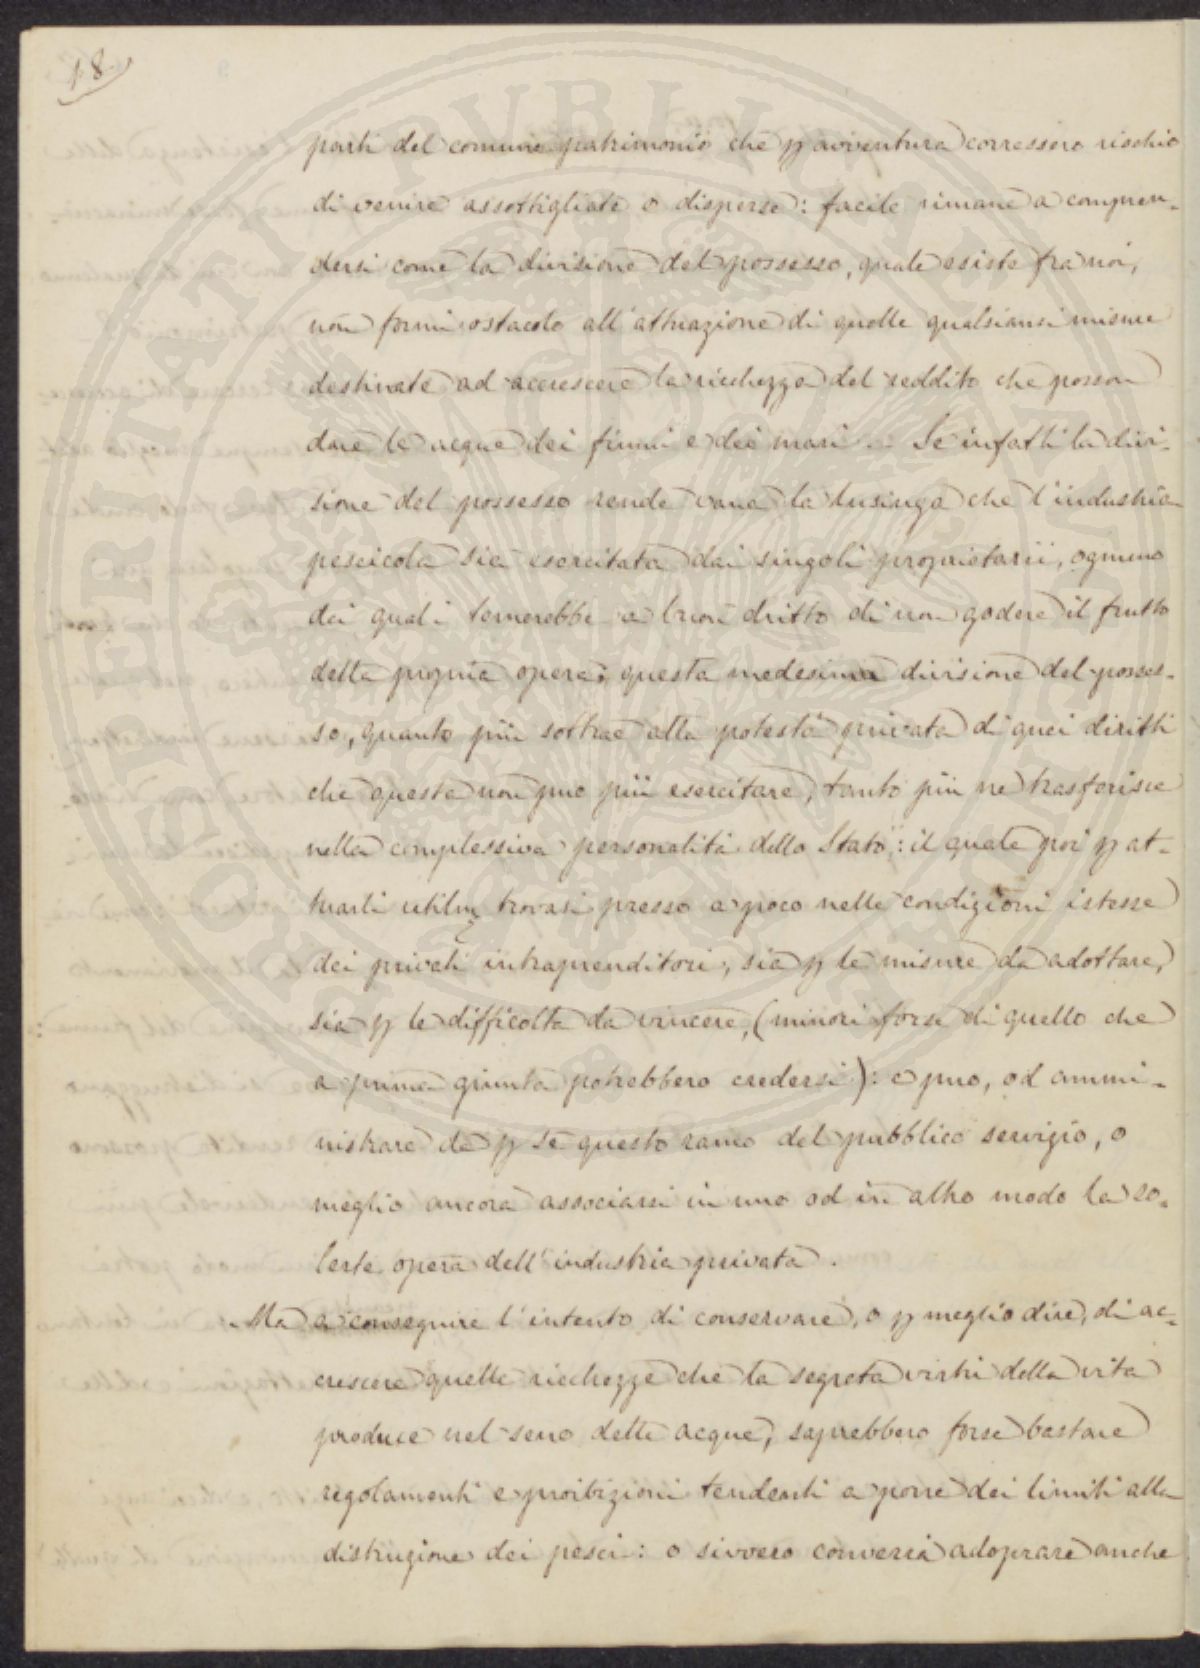 18.
PROSPERITATI PVBLICAE
parti del comune patrimonio che p avventura corressero rischio
di venire assottigliate o disperse: facile rimane a compren-
dersi come la divisione del possesso, quale esiste fra noi,
non formi ostacolo all'attuazione di quelle qualsiansi misure
destinate ad accrescere la ricchezza del reddito che posson
dare le acque dei fiumi e dei mari. Se infatti la divi-
sione del possesso rende vana la lusinga che l'industria
pescicola sia esercitata dai singoli proprietarii, ognuno
dei quali temerebbe a buon dritto di non godere il frutto
della propria opera; questa medesima divisione del posses-
so, quanto più sottrae alla potestà privata di quei diritti
che questa non può più esercitare, tanto più ne trasferisce
nella complessiva personalità dello Stato: il quale poi p at-
tuarli utilme trovasi presso a poco nelle condizioni istesse
dei privati intraprenditori, sia p le misure da adottare,
sia p le difficoltà da vincere, (minori forse di quello che
a prima giunta potrebbero credersi): e può, od ammi-
nistrare da p sè questo ramo del pubblico servizio, o
meglio ancora associarsi in uno od in altro modo la so-
lerte opera dell'industria privata.
Ma a conseguire l'intento di conservare, o p meglio dire, di ac-
crescere quelle ricchezze che la segreta virtù della vita
produce nel seno delle acque, saprebbero forse bastare
regolamenti e proibizioni tendenti a porre dei limiti alla
distruzione dei pesci: o sivvero converrà adoprare anche